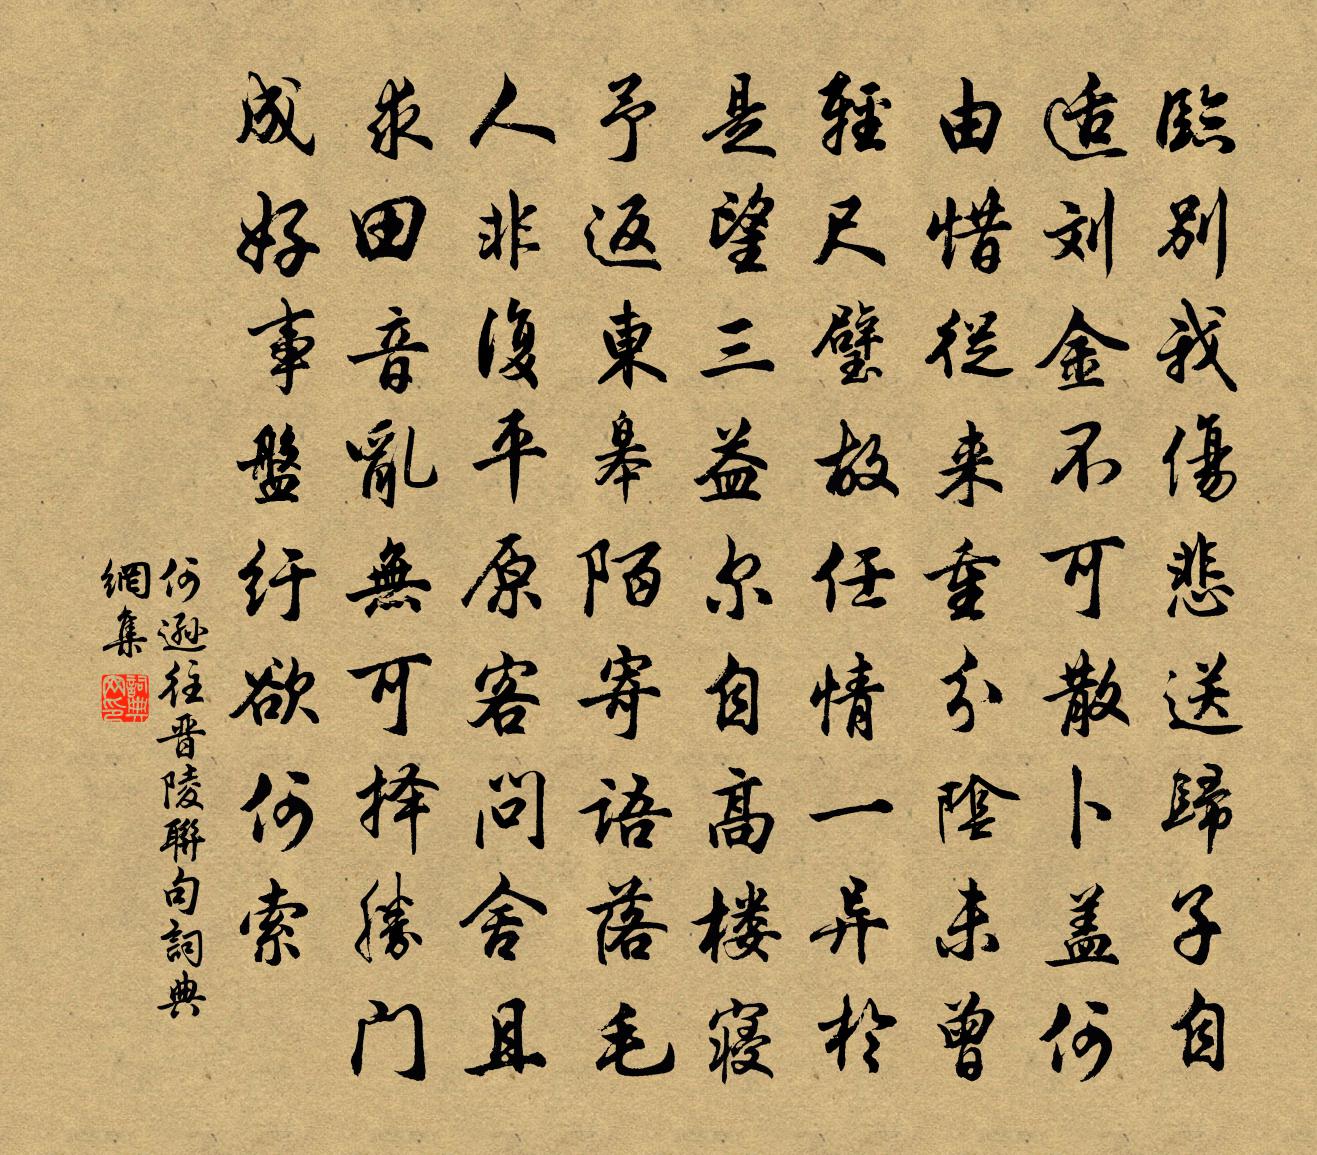 臨别我傷悲送歸子自
适刘金不可散卜盖何
由惜従来重分陰未曾
輕尺璧故任情一异於
是望三益尔自高楼寝
予返東皋陌寄語落毛
人非復平原客問舍且
求田音亂無可择勝门
成好事盤纡欲何索
何遜往晋陵聯句詞典
網集